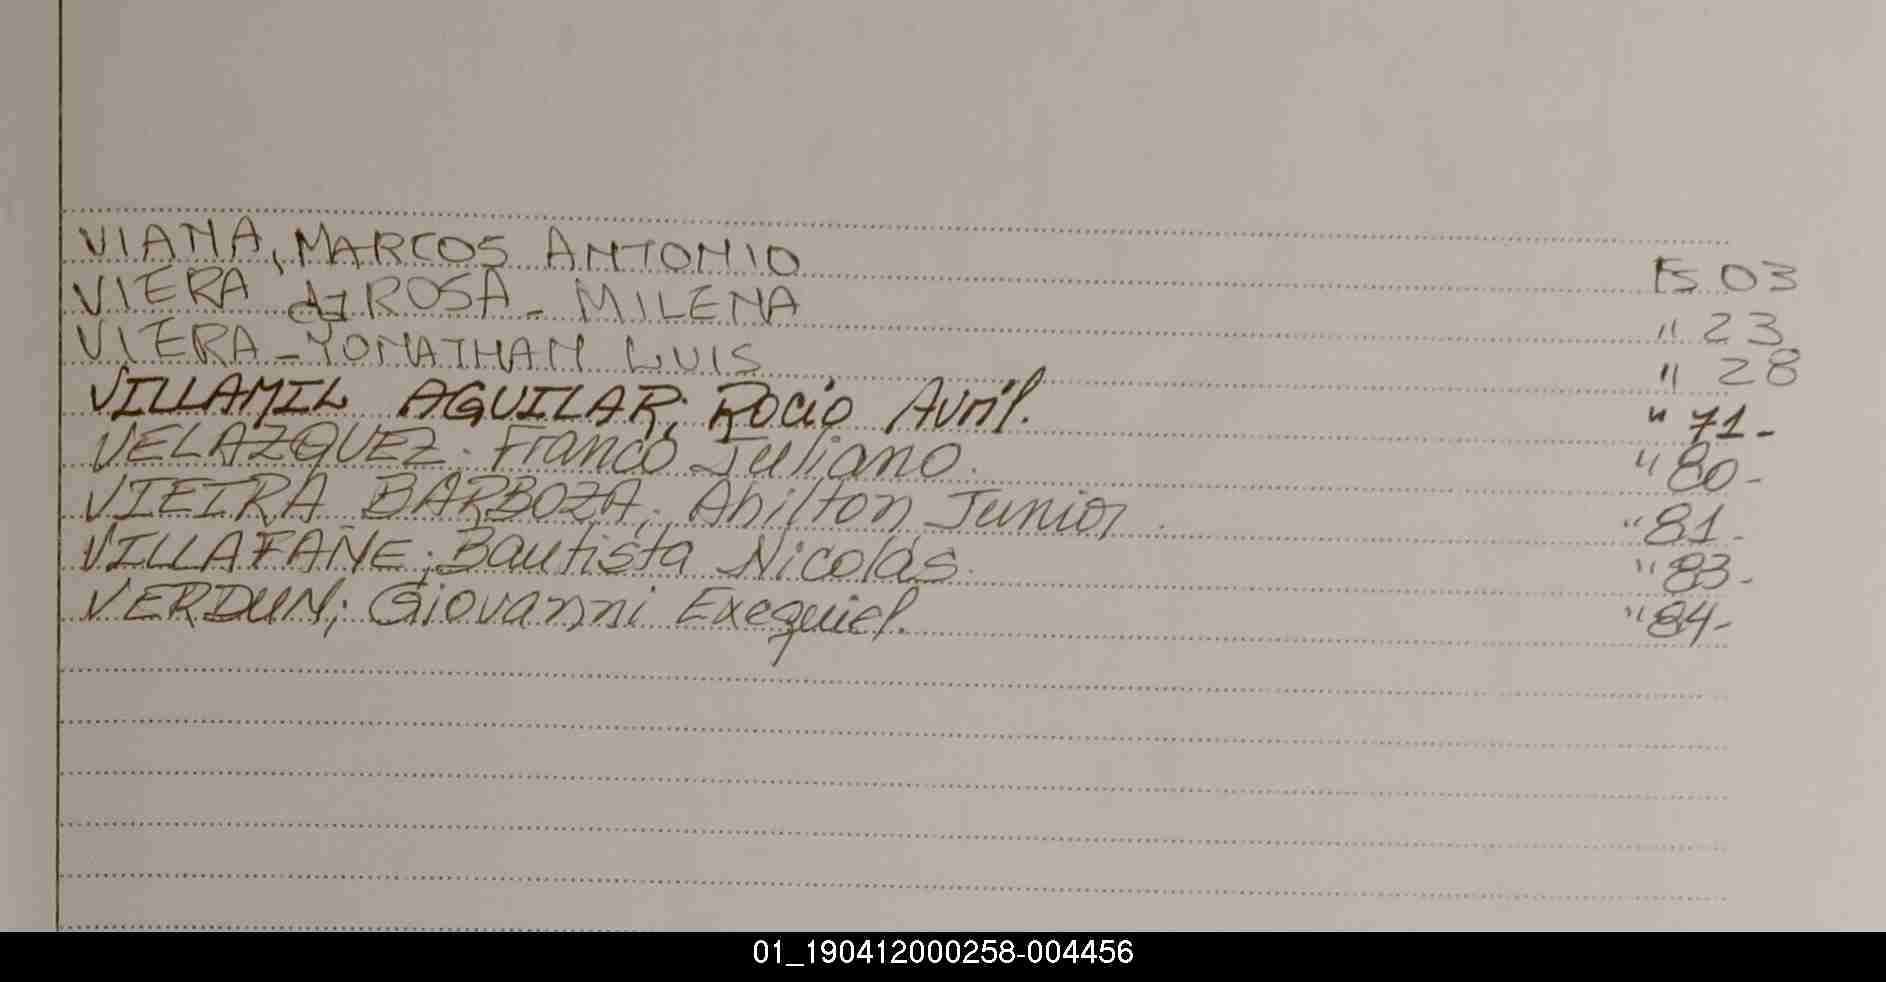 VIANA, MARCOS ANTONIO Fs 03
VIERA da ROSA - MILENA " 23
VIERA - YONATHAN LUIS " 28
VILLAMIL AGUILAR; Rocio Avril. " 71-
VELAZQUEZ. Franco Juliano. " 80-
VIEIRA BARBOZA; Ahilton Junior. " 81-
VILLAFAÑE; Bautista Nicolás. " 83-
VERDUN; Giovanni Exequiel. " 84-
01_190412000258-004456